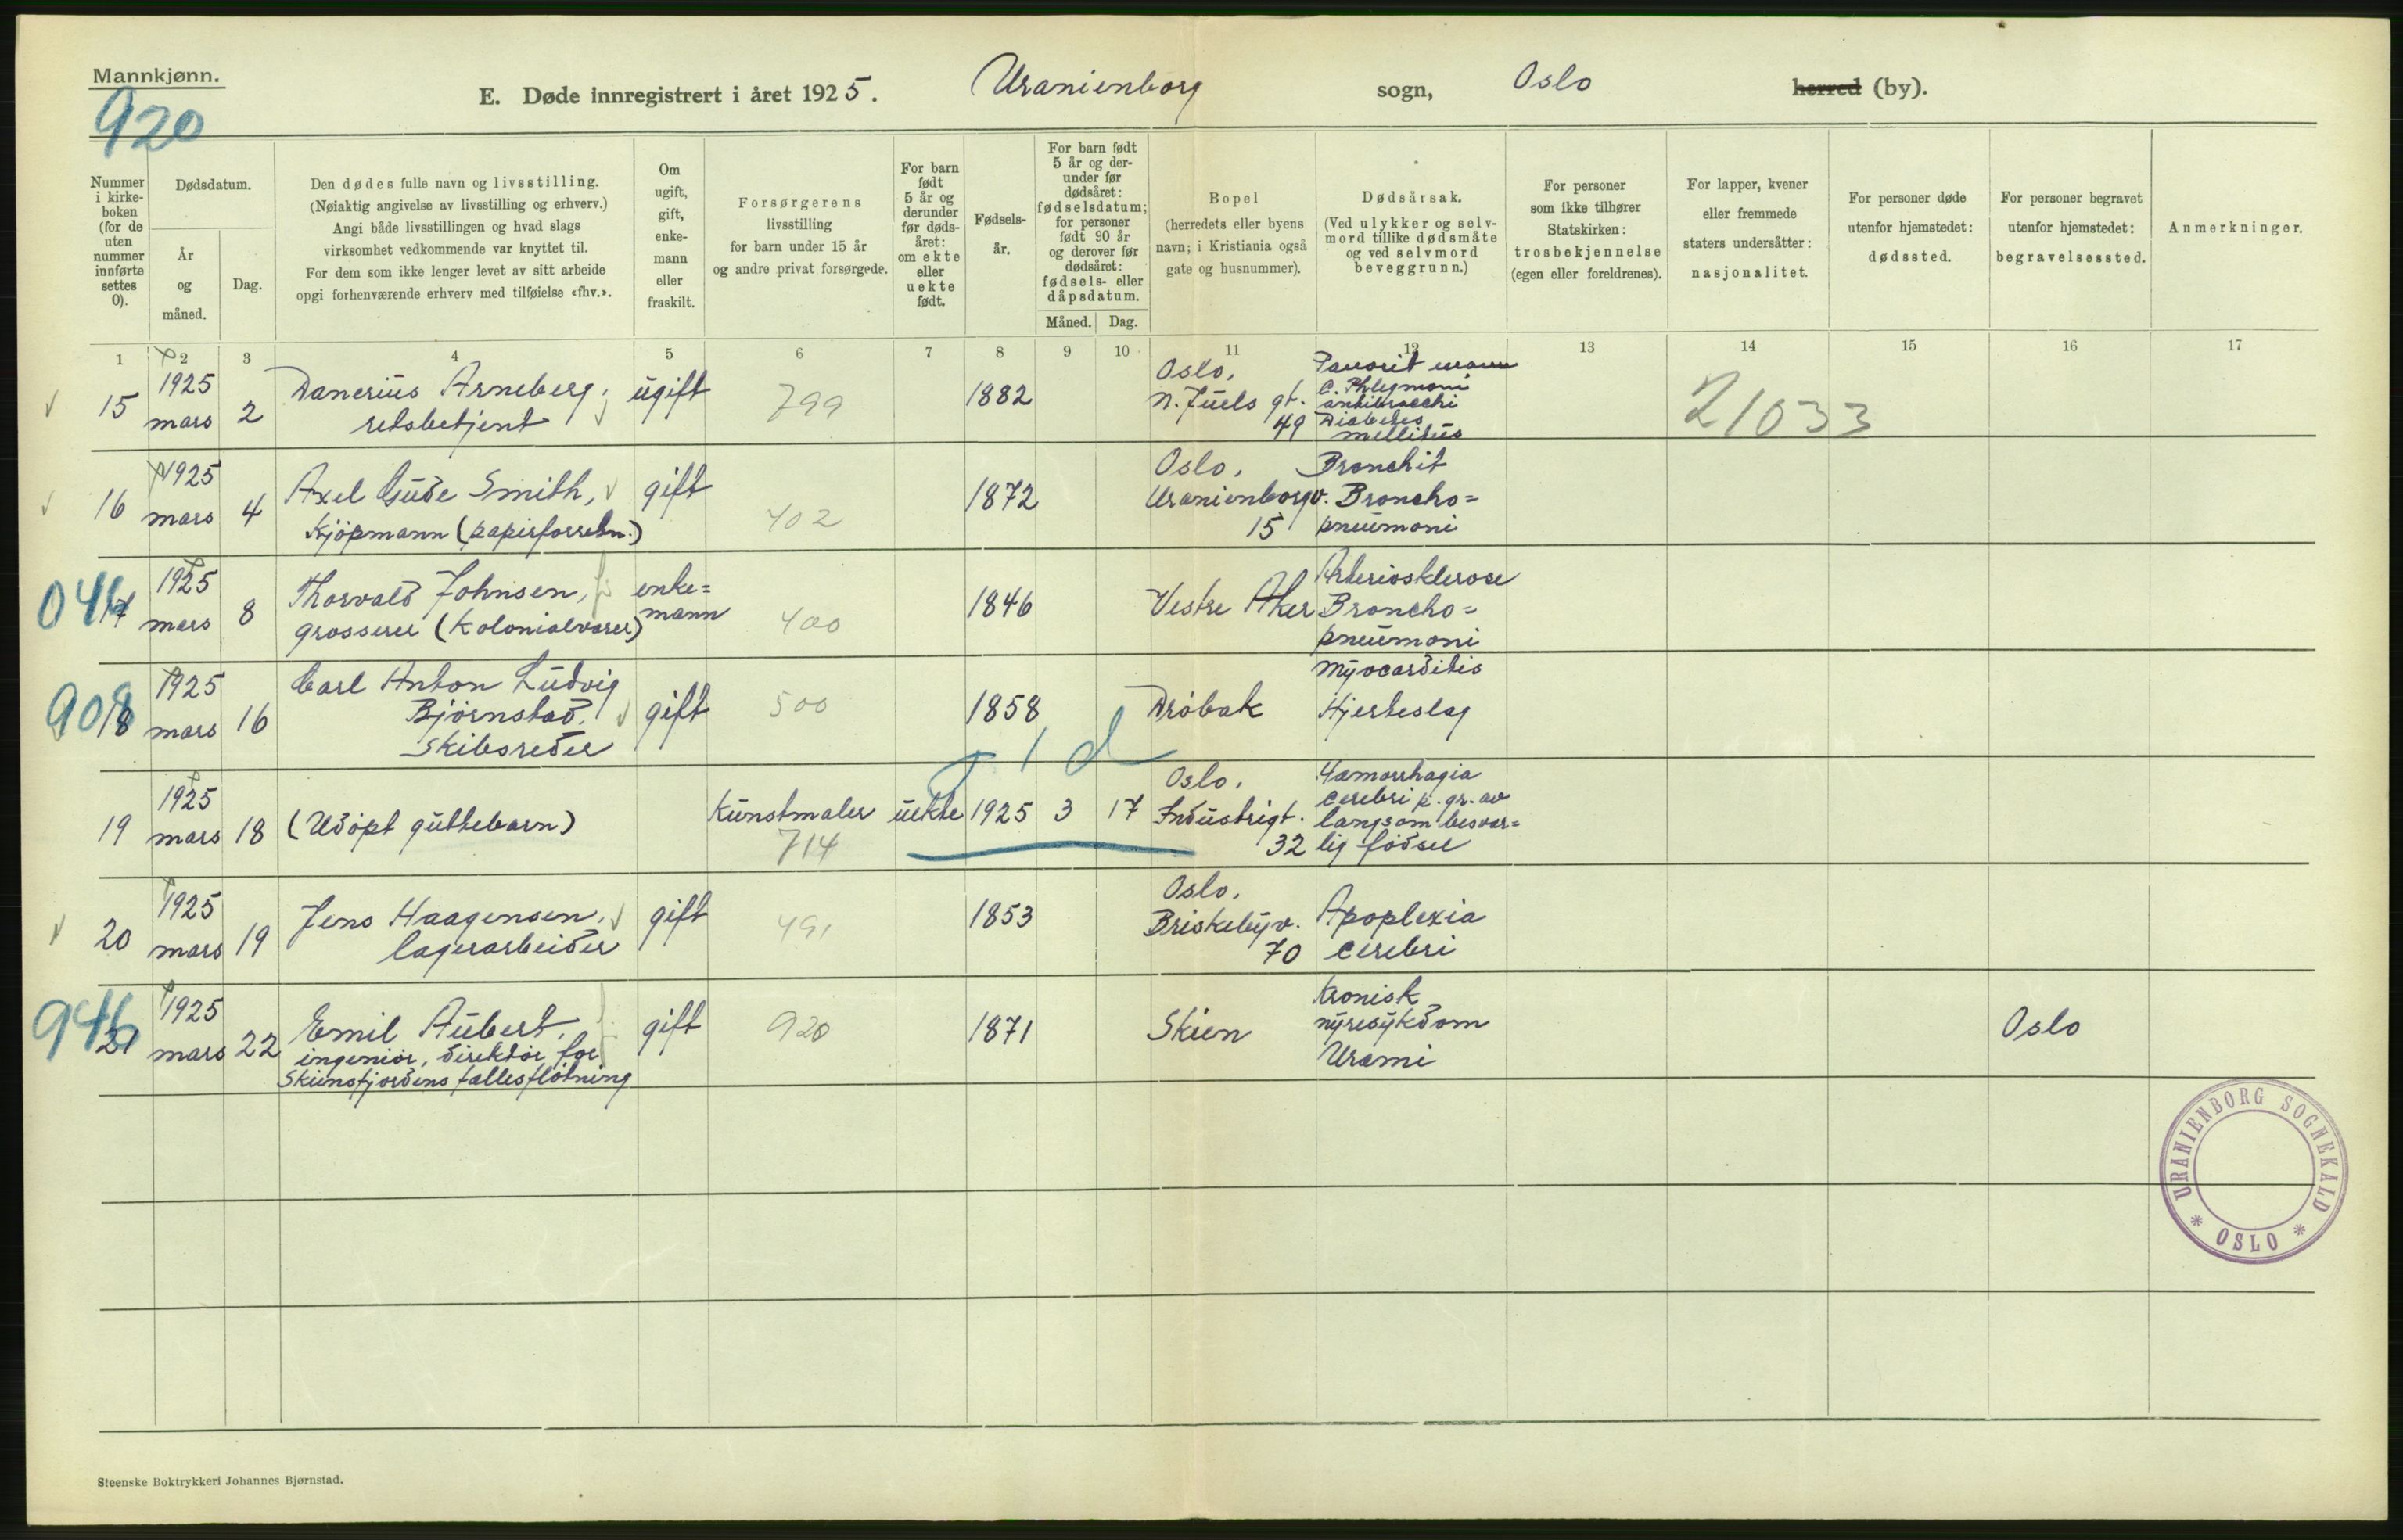 Mannkjønn.
920
E. Døde innregistrert i året 1925.
Uranienborg sogn, Oslo herred (by).
Nummer i kirke-boken (for de uten nummer innførte settes 0).
Dødsdatum.
År og måned.
Dag.
Den dødes fulle navn og livsstilling.
(Nøiaktig angivelse av livsstilling og erhverv.)
Angi både livsstillingen og hvad slags
virksomhet vedkommende var knyttet til.
For dem som ikke lenger levet av sitt arbeide
opgi forhenværende erhverv med tilføielse «fhv.».
Om ugift, gift, enke-mann eller fraskilt.
Forsørgerens
livsstilling
for barn under 15 år
og andre privat forsørgede.
For barn født 5 år og derunder før døds-året: om ekte eller uekte født.
Fødsels-år.
For barn født 5 år og der-under før dødsåret: fødselsdatum; for personer født 90 år og derover før dødsåret: fødsels- eller dåpsdatum.
Måned. Dag.
Bopel
(herredets eller byens
navn; i Kristiania også
gate og husnummer).
Dødsårsak.
(Ved ulykker og selv-
mord tillike dødsmåte
og ved selvmord
beveggrunn.)
For personer
som ikke tilhører
Statskirken:
trosbekjennelse
(egen eller foreldrenes).
For lapper, kvener
eller fremmede
staters undersåtter:
nasjonalitet.
For personer døde
utenfor hjemstedet:
dødssted.
For personer begravet
utenfor hjemstedet:
begravelsessted.
Anmerkninger.
1 2 3 4 5 6 7 8 9 10 11 12 13 14 15 16 17
15 1925 mars 2
Danerius Arneberg,
retsbetjent
ugift 799 1882
Oslo,
N. Juels gt.
49
c. Phlegmoni
antibracchi
Diabetes
mellitus
21033
16 1925 mars 4
Axel Gude Smith,
Kjøpmann (papirforretn.)
gift 702 1872
Oslo,
Uranienborgv.
15
Bronchit
Broncho=
pneumoni
17 1925 mars 8
Thorvald Johnsen,
grosserer (Kolonialvarer)
enke=
mann
400 1846
Vestre Aker
Arteriosklerose
Broncho=
pneumoni
908
18 1925 mars 16
Carl Anton Ludvig
Bjørnstad,
Skibsreder
gift 500 1858
Drøbak
Myocarditis
Hjerteslag
19 1925 mars 18
(Udøpt guttebarn)
Kunstmaler
714
uekte 1925 3 17
Oslo,
Industrigt.
32
Hæmorrhagia
cerebri p. gr. av
langsom besvær=
lig fødsel
20 1925 mars 19
Jens Haagensen,
lagerarbeider
gift 491 1853
Oslo,
Briskebyv.
70
Apoplexia
cerebri
946
21 1925 mars 22
Emil Aubert,
ingeniør, direktør for
Skiensfjordens fællesfløtning
gift 920 1871
Skien
Kronisk
nyresykdom
Uræmi
Oslo
URANIENBORG SOGNEKALD
* OSLO *
Steenske Boktrykkeri Johannes Bjørnstad.